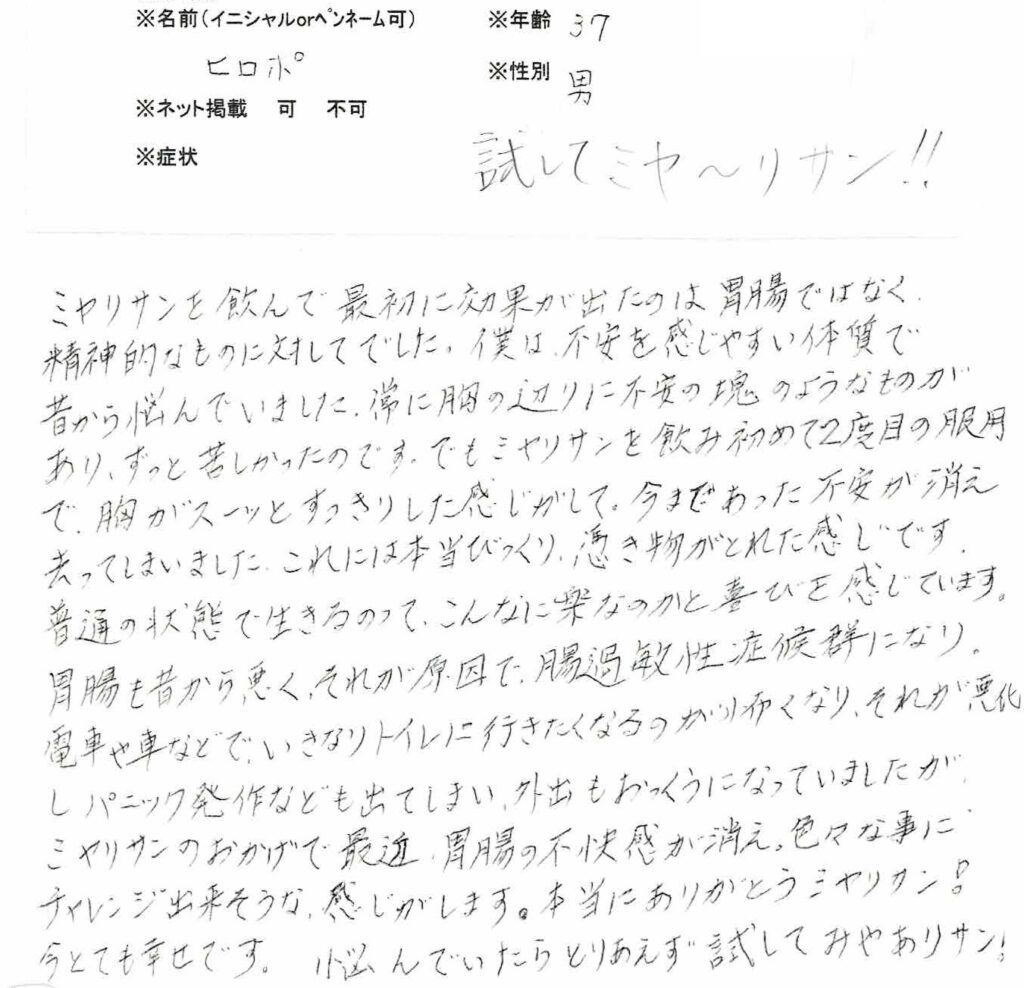 ※名前(イニシャルorペンネーム可) ※年齢 37
ヒロポ ※性別 男
※ネット掲載 可 不可
※症状
試してミヤ～リサン!!
ミヤリサンを飲んで最初に効果が出たのは胃腸ではなく、
精神的なものに対してでした。僕は、不安を感じやすい体質で
昔から悩んでいました、常に胸の辺りに不安の塊のようなものが
あり、ずっと苦しかったのです。でもミヤリサンを飲み初めて2度目の服用
で、胸がスーッとすっきりした感じがして。今まであった不安が消え
去ってしまいました、これには本当びっくり、憑き物がとれた感じです、
普通の状態で生きるのって、こんなに楽なのかと喜びを感じています。
胃腸も昔から悪く、それが原因で、腸過敏性症候群になり、
電車や車などで、いきなりトイレに行きたくなるのが怖くなり、それが悪化
しパニック発作なども出てしまい、外出もおっくうになっていましたが、
ミヤリサンのおかげで最近、胃腸の不快感が消え、色々な事に
チャレンジ出来そうな、感じがします。本当にありがとうミヤリサン!
今とても幸せです。 悩んでいたらとりあえず試してみやありサン!